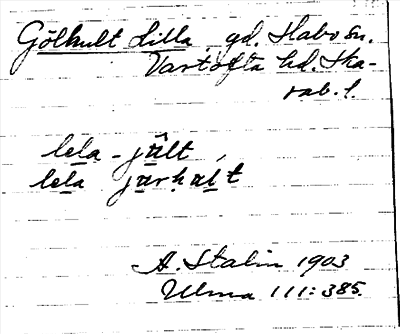 Gölkult Lilla, gd. Habo sn.
Vartofta hd. Ska-
rab. l.
lela - jält,
lela
A. Stalin 1903
Ulma 111:385.